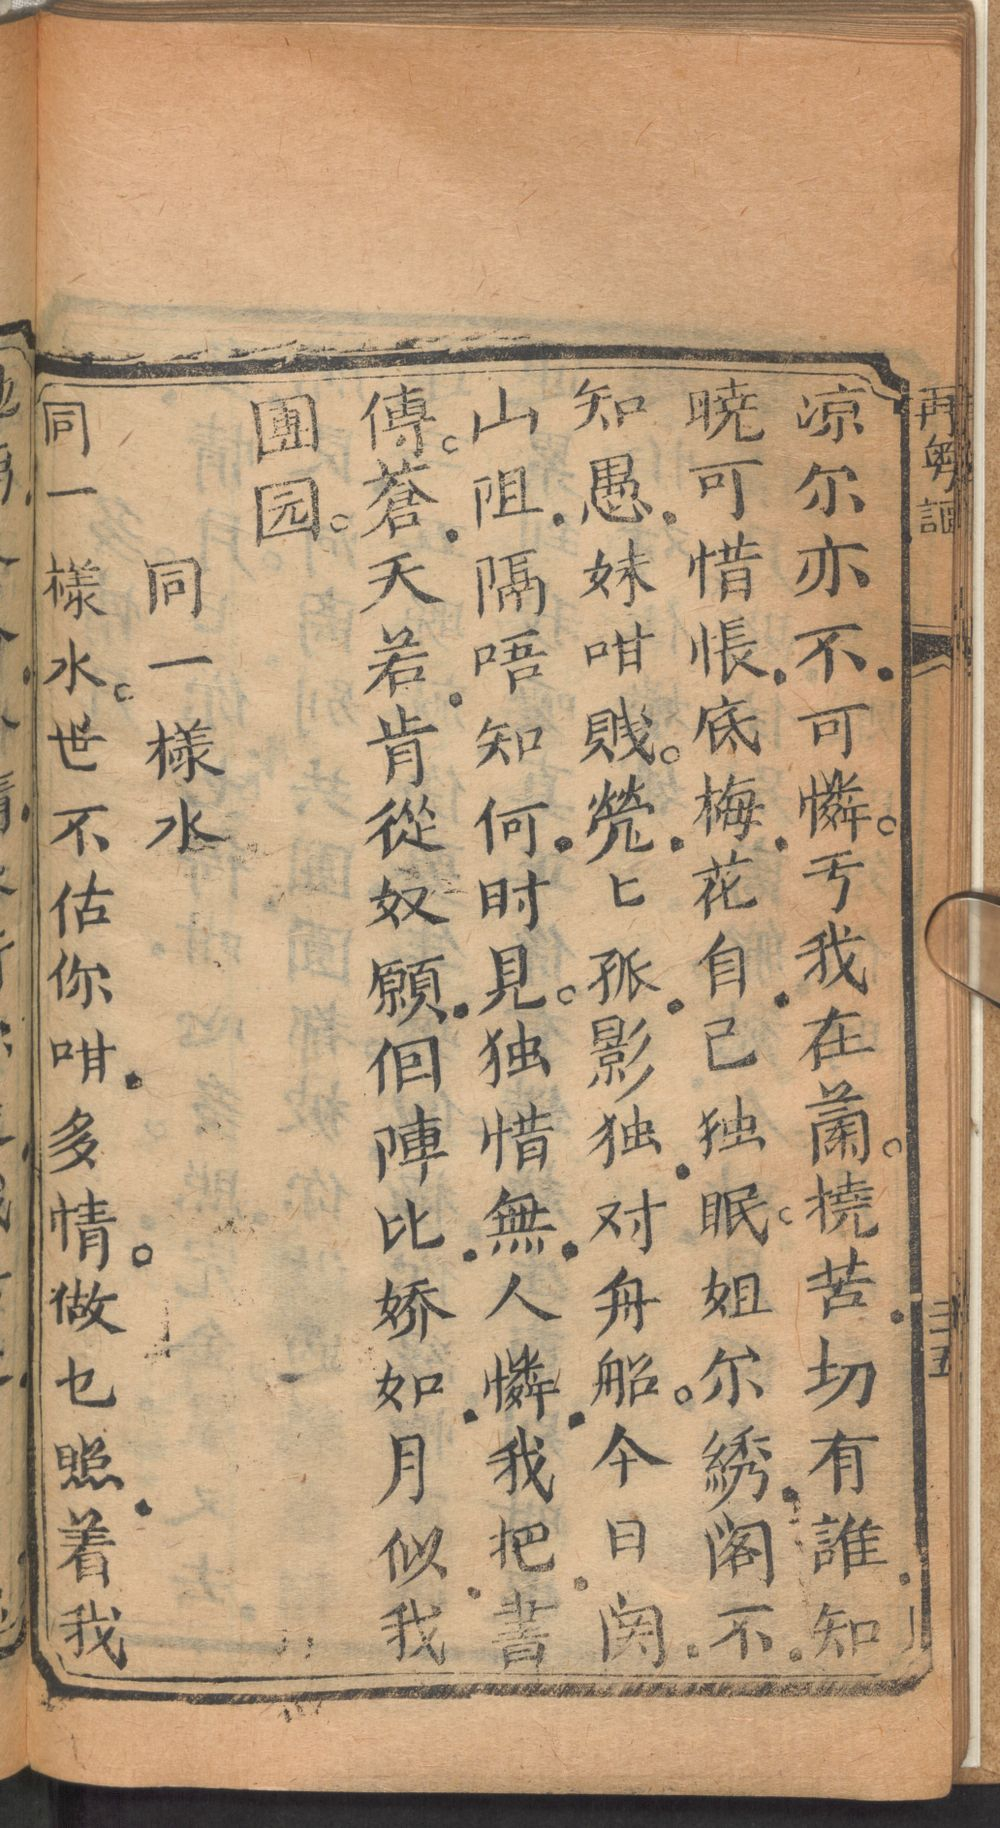 再粵謳
三五
凉尔亦不可憐。亏我在蘭撓苦切有誰知
曉可惜悵底梅花自己独眠。姐尔綉阁不
知愚妹咁賤。煢匕孤影独对舟船。今日関
山阻隔唔知何时見。独惜無人憐我把書
傳。蒼天若肯從奴願佪陣比娇如月似我
團园。
同一樣水
同一樣水。世不估你咁多情。做乜照着我